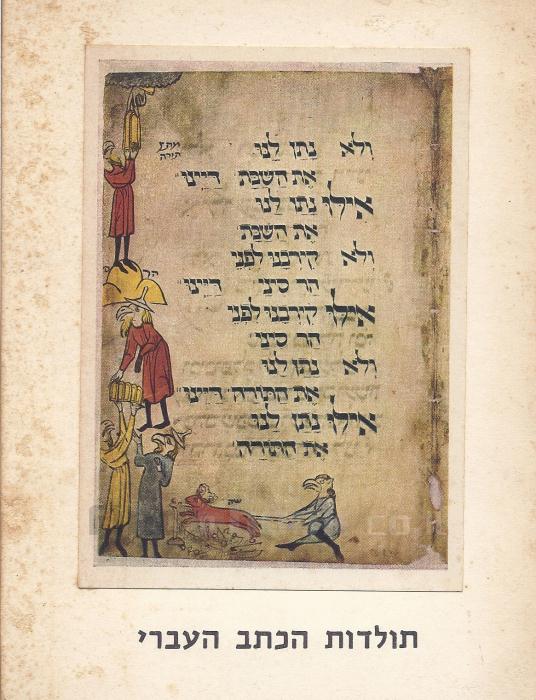 ולא נתן לנו
מתן
תורה
את השבת דיינו
אילו נתן לנו
את השבת
ולא קירבנו לפני
הר סיני דיינו
הר
אילו קירבנו לפני
הר סיני
ולא נתן לנו
את התורה דיינו
אילו נתן לנו
את התורה
תולדות הכתב העברי